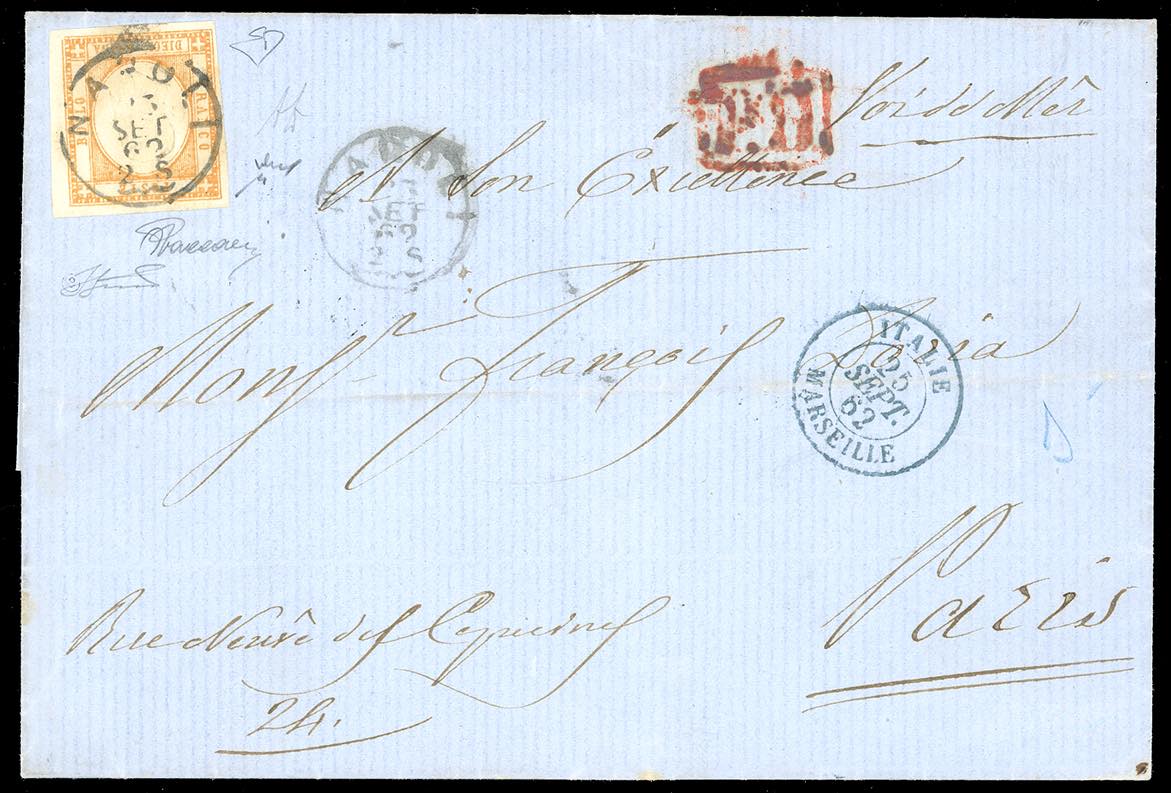 DIECI GRANA
BOLLO
FRANCO
NAPOLI
SET
62
2 S
NAPOLI
SET
62
2 S
P.D.
Voie de Mer
A Son Excellence
Mons François
ITALIE
25
SEPT.
62
MARSEILLE
Paris
Rue Neuve des Capucines
24.